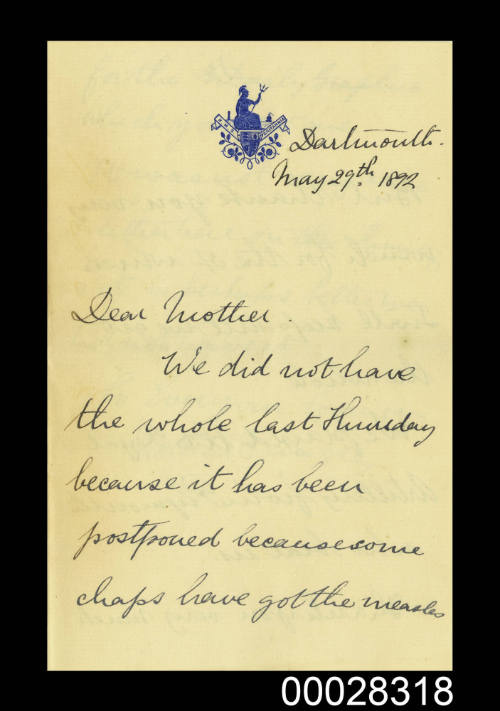 Dartmouth.
May 29th. 1892
Dear Mother.
We did not have
the whole last Thursday
because it has been
postponed because some
chaps have got the measles
00028318